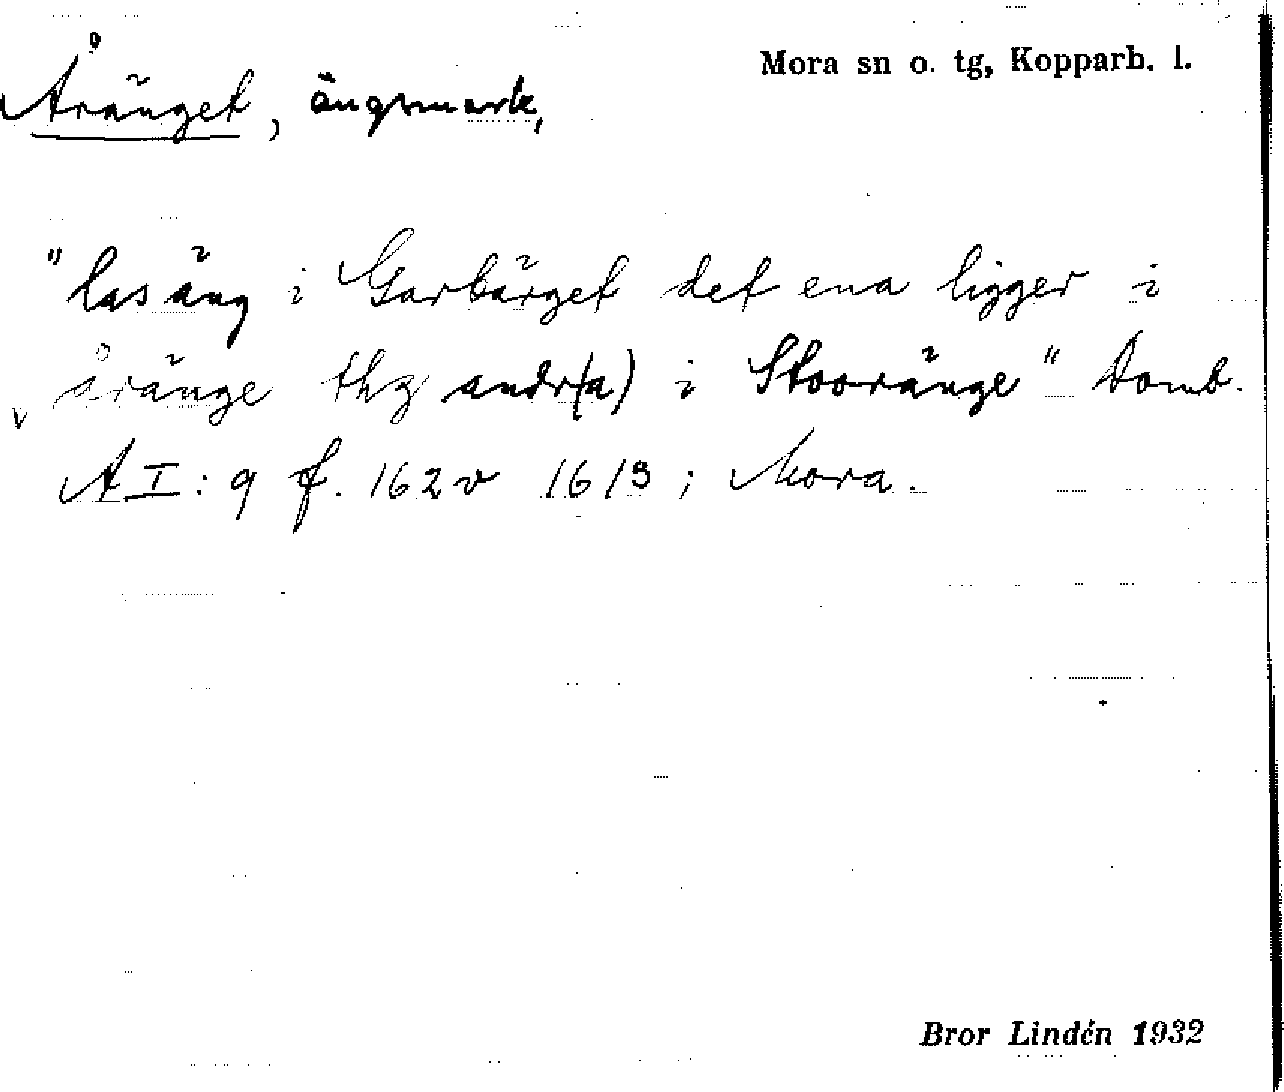 Mora sn o. tg, Kopparb. l.
Åränget, ängsmark,
"las äng i Garbärget det ena ligger i
åränge thz andr(a) i Stooränge" Domb.
A I: 9 f. 162 v 1613; Mora.
Bror Lindén 1932